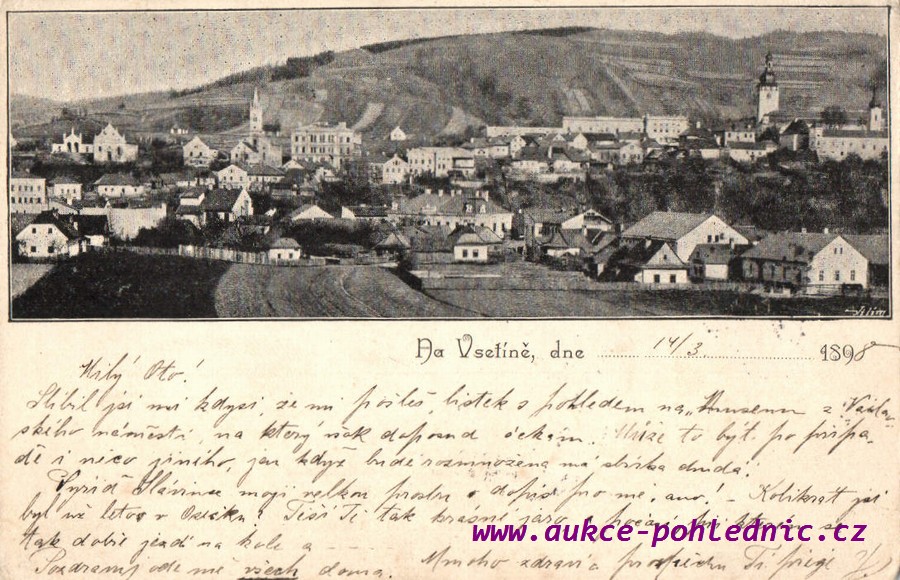 Na Vsetíně, dne 14/3. 1898
Milý Oto!
Slíbil jsi mi kdysi, že mi pošleš lístek s pohledem na „Museum z Václav-
ského náměstí, na který však doposud čekám. Může to být po přípa-
dě i něco jiného, jen když bude rozmnožena má sbírka chudá.
Vyřiď Slávince moji velkou prosbu o dopis pro mě, ano! – Kolikrát jsi
byl už letos v Oseku? Těší Tě tak krásné jaro a počasí, při kterém se
tak dobře jezdí na kole a
Pozdravuj ode mě všech doma. Mnoho zdraví a prospěchu Ti přeje
www.aukce-pohlednic.cz